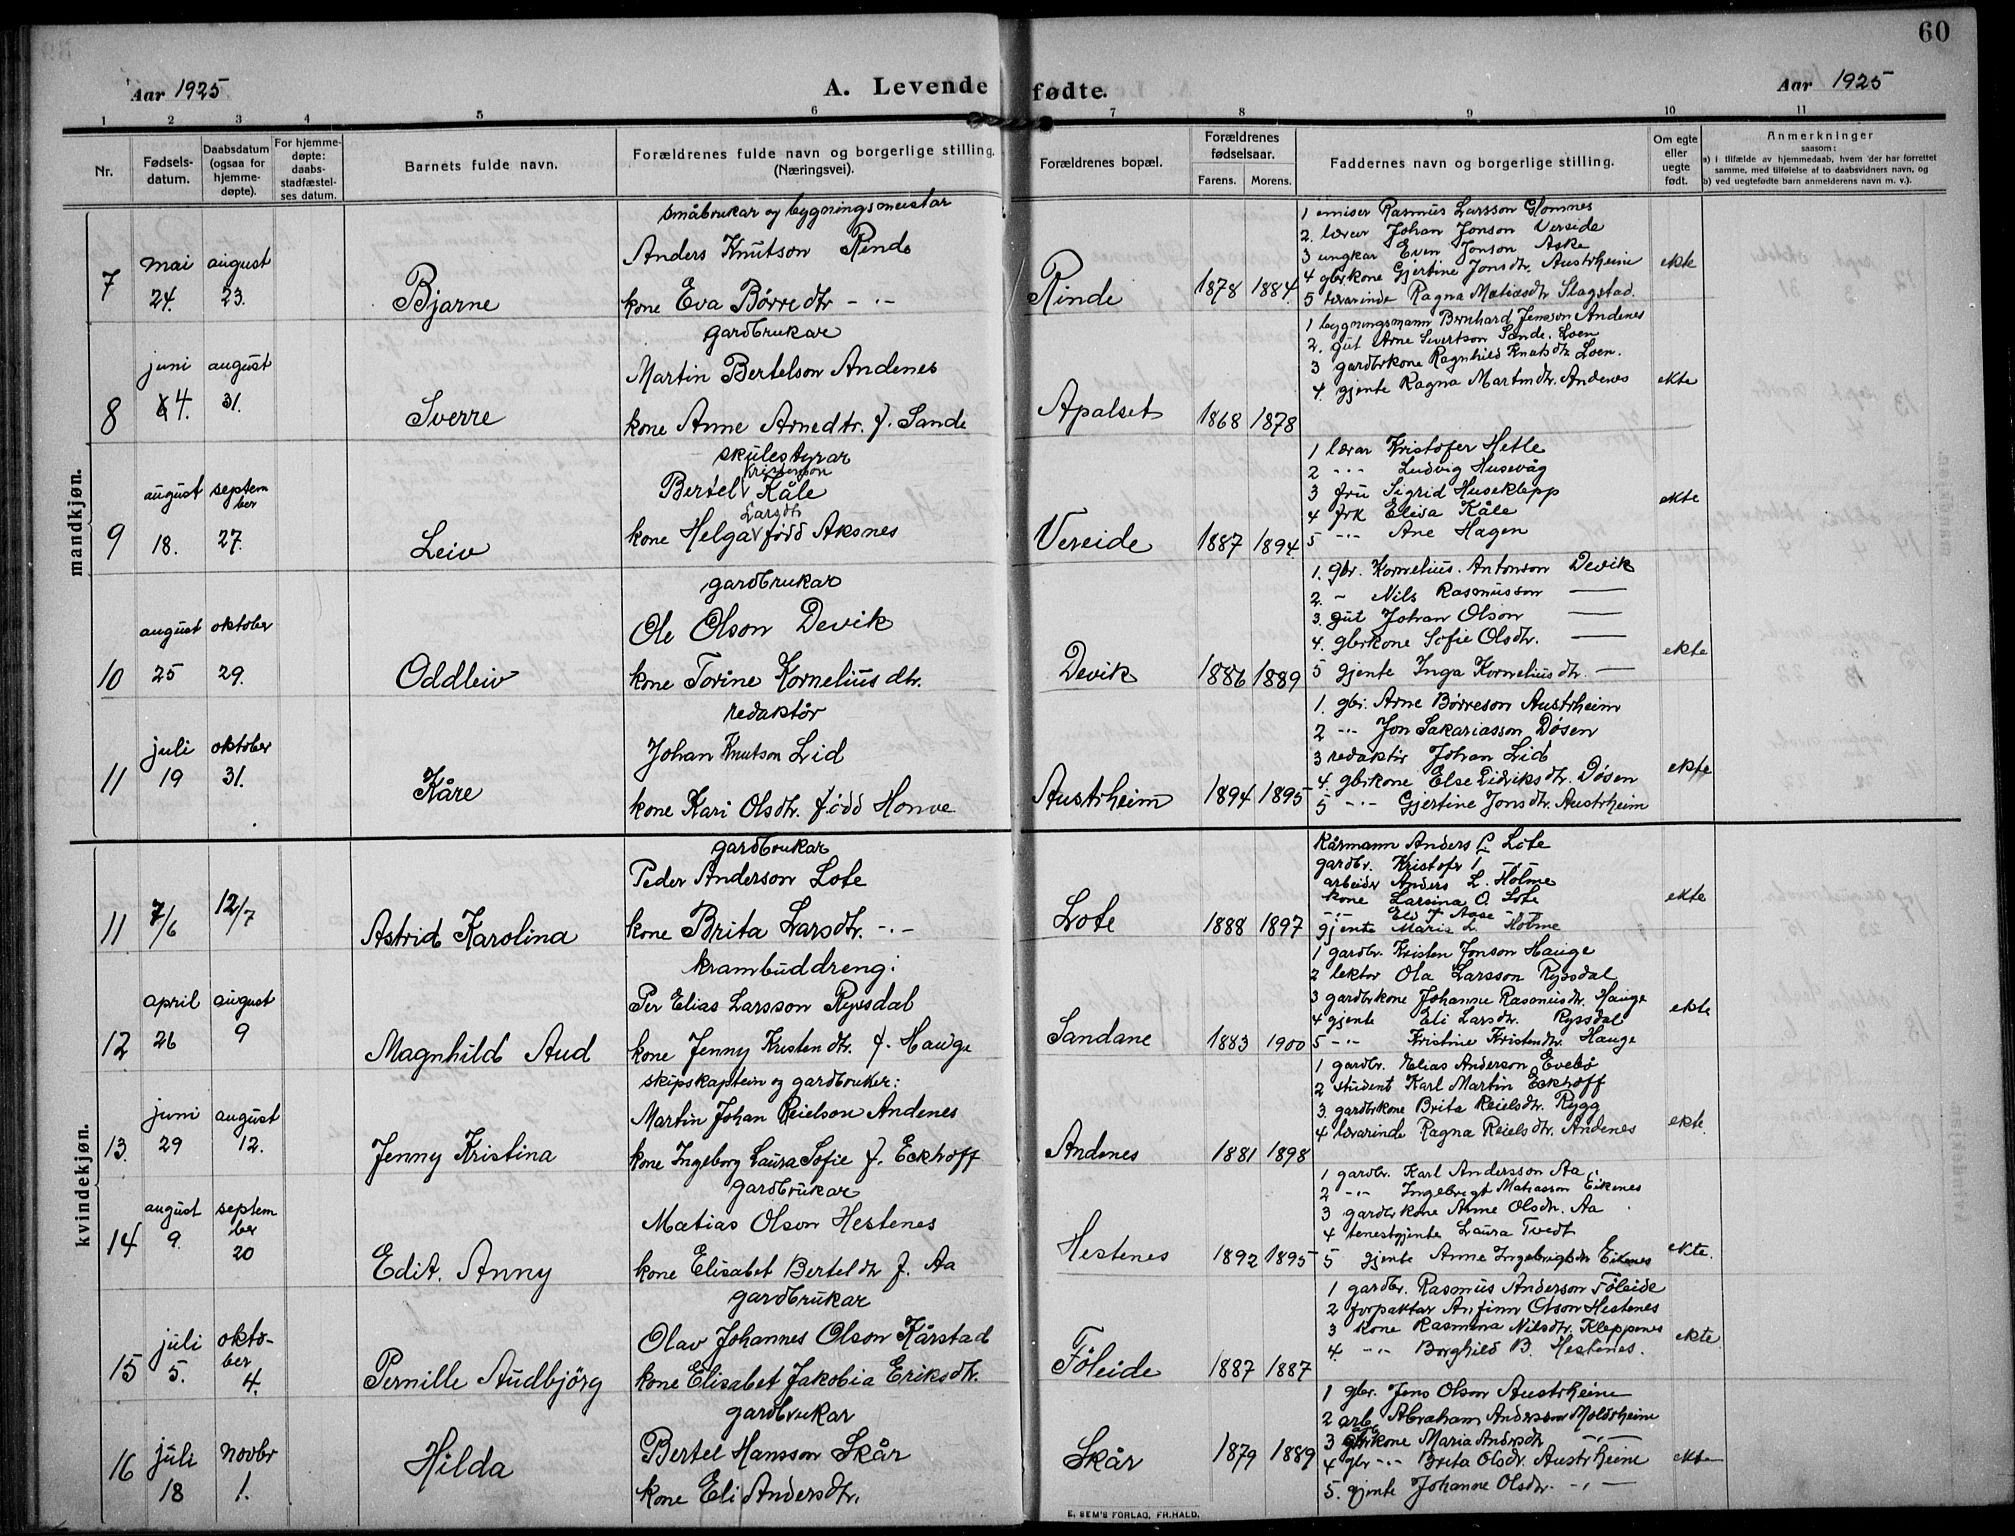 60
Aar 1925
A. Levende fødte.
Aar 1925
1 2 3 4 5 6 7 8 9 10 11
Nr.
Fødsels-
datum.
Daabsdatum
(ogsaa for
hjemme-
døpte).
For hjemme-
døpte:
daabs-
stadfæstel-
ses datum.
Barnets fulde navn.
Forældrenes fulde navn og borgerlige stilling.
(Næringsvei).
Forældrenes bopæl.
Forældrenes
fødselsaar.
Farens. Morens.
Faddernes navn og borgerlige stilling.
Om egte
eller
uegte
født.
Anmerkninger
saasom:
a) i tilfælde av hjemmedaab, hvem der har forrettet
samme, med tilføielse af to daabsvidners navn, og
b) ved uegtefødte barn anmelderens navn m. v.).
mandkjøn.
7
mai
24.
august
23.
Bjarne
småbrukar og bygningsmeistar
Anders Knutson Rinde
kone Eva Børredtr -"-
Rinde
1878 1884.
1 emisær Rasmus Larsson Glomnes
2. lærar Johan Jonson Vereide
3 ungkar Even Jonson Aske
4 gbrkone Gjertine Jonsdtr. Austrheim
5 lærarinde Ragna Matiasdtr Slagstad.
ekte
8
juni
4.
august
31.
Sverre
gardbrukar
Martin Bertelson Andenes
kone Anne Arnedtr. f. Sande
Apalset
1868 1878
1 bygningsmann Bernhard Jensson Andenes
2. gut Arne Sivertson Sande. Loen
3 gardbrkone Ragnhild Knutsdtr Loen.
4. gjente Ragna Martindtr. Andenes
ekte
9
august
18.
septem
ber
27.
Leiv
skulestyrar
Kristenson
Bertel Kåle
Larsdtr
kone Helga född Aksnes
Vereide
1887 1894.
1 lærar Kristofer Hetle
2 -"- Ludvig Husevåg
3 fru Sigrid Huseklepp
4 frk Elisa Kåle
5 -"- Ane Hagen
ekte
10
august
25
oktober
29.
Oddleiv
gardbrukar
Ole Olson Devik
kone Torine Kornelius dtr.
Devik
1886 1889
1. gbr. Kornelius. Antonson Devik
2. " Nils Rasmusson —
3. gut Johan Olson —
4. gbrkone Sofie Olsdtr. —
5 gjente Inga Kornelius dtr. —
ekte
11
juli
19
oktober
31.
Kåre
redaktør
Johan Knutson Lid
kone Kari Olsdtr. född Honve
Austrheim
1894 1895
1. gbr. Arne Børreson Austrheim
2 -"- Jon Sakariasson Døsen
3 redaktør Johan Lid
4. gbrkone Else Didriksdtr. Døsen
5 -"- Gjertine Jonsdtr. Austrheim
ekte
kvindekjøn.
11
7/6
12/7
Astrid Karolina
gardbrukar
Peder Anderson Lote
kone Brita Larsdtr. -"-
Lote
1888 1897
Kårmann Anders Lote
gardbr. Kristofer
arbeidr Anders L. Holme
kone Larsina O. Lote
gjente Maria L. Holme
ekte
12
april
26
august
9
Magnhild Aud
krambuddreng:
Per Elias Larsson Ryssdal
kone Jenny Kristendtr. f. Hauge
Sandane
1883 1900
1 gardbr. Kristen Jonson Hauge
2 lektor Ola Larsson Ryssdal
3 gardbrkone Johanne Rasmusdtr. Hauge
4 gjente Eli Larsdtr. Ryssdal
5 -"- Kristine Kristendtr. Hauge
ekte
13.
juni
29
august
12.
Jenny Kristina
skipskaptein og gardbruker:
Martin Johan Reielson Andenes
kone Ingeborg Laura Sofie f. Eckhoff
Andenes
1881 1898
1 gardbr. Elias Anderson Evebø
2 student Karl Martin Eckhoff
3. gardbrkone Brita Reielsdtr. Rygg
4 lærarinde Ragna Reielsdtr. Andenes
ekte.
14
august
9.
septem
ber
20
Edit. Anny
gardbrukar
Matias Olson Hestenes
kone Elisabet Berteldtr f. Aa
Hestenes
1892 1895
1 gardbr. Karl Andersson Aa.
2 -"- Ingebrigt Matiasson Eikenes
3 gardbrkone Anne Olsdtr. Aa
4 tenestgjente Laura Tvedt
5 gjente Anne Ingebrigtsdtr Eikenes
ekte.
15
juli
5.
okto-
ber
4.
Pernille Audbjörg
gardbrukar
Olav Johannes Olson Kårstad
kone Elisabet Jakobia Eriksdtr.
Föleide
1887 1887
1 gardbr. Rasmus Anderson Föleide
2 forpaktar Anfinn Olson Hestenes
3 kone Rasmina Nilsdtr. Kleppenes
4. -"- Borghild B. Hestenes.
ekte
16
juli
18
novbr
1.
Hilda
gardbrukar
Bertel Hansson Skår
kone Eli Andersdtr.
Skår
1879 1889
1 gbr. Jens Olson Austrheim
2 arb. Abraham Andersson Moldrheim
3 gbrkone Maria Andrsdtr -"-
4 gbr -"- Brita Olsdtr. Austrheim
5. gjente Johanne Olsdtr. -"-
ekte
E. SEM'S FORLAG, FR.HALD.